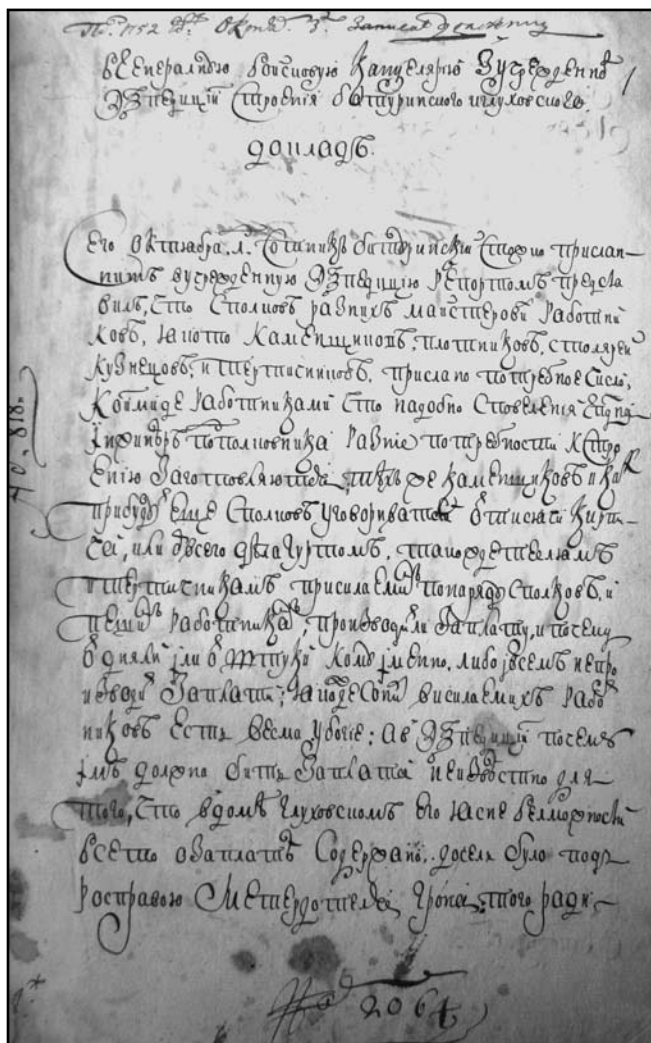 1752 Октяб. 3. Записат
вГенералную воисковую канцелярию Зучрежденной
Экспедиции Строения батуринского иглуховского
докладъ
Сего октября .1. Сотникъ батуринский Стожко прислан
нимъ вучрежденную Экспедицию Репортомъ предста
вилъ, Что Сполковъ разнихъ маистеровъ и работни
ковъ, якото каменщиковъ, плотниковъ, столярей
кузнецовъ, и тертичниковъ, прислано потребное Число,
работниками Что надобно Сповеления
Інженѣръ Подполковника разніе потребности кСтро
ению Заготовляются, тѣхъ же каменщиковъ и какъ
прибудут еще Сполковъ уговориватся от тисячи кирпи
чей, или отвсего дѣла гуртомъ, такожде теслямъ
и тертичникамъ присилаемимъ понаряду Сполковъ, и
пешимъ работникамъ, производит ли Заплату, и почему
от дня ли или от штуки кому именно, либо и всемъ непро
изводит Заплати; якожде висилаемихъ рабо
никовъ Есть весма убогие; а в Экспедиции почему
імъ должна бить Заплата неизвѣстно для
того, Что вдомѣ глуховскомъ Его Ясне велможности
все то озаплатѣ Содержано, доселя было подъ
росправою Метердотеля, того ради
Л. 818.
2064